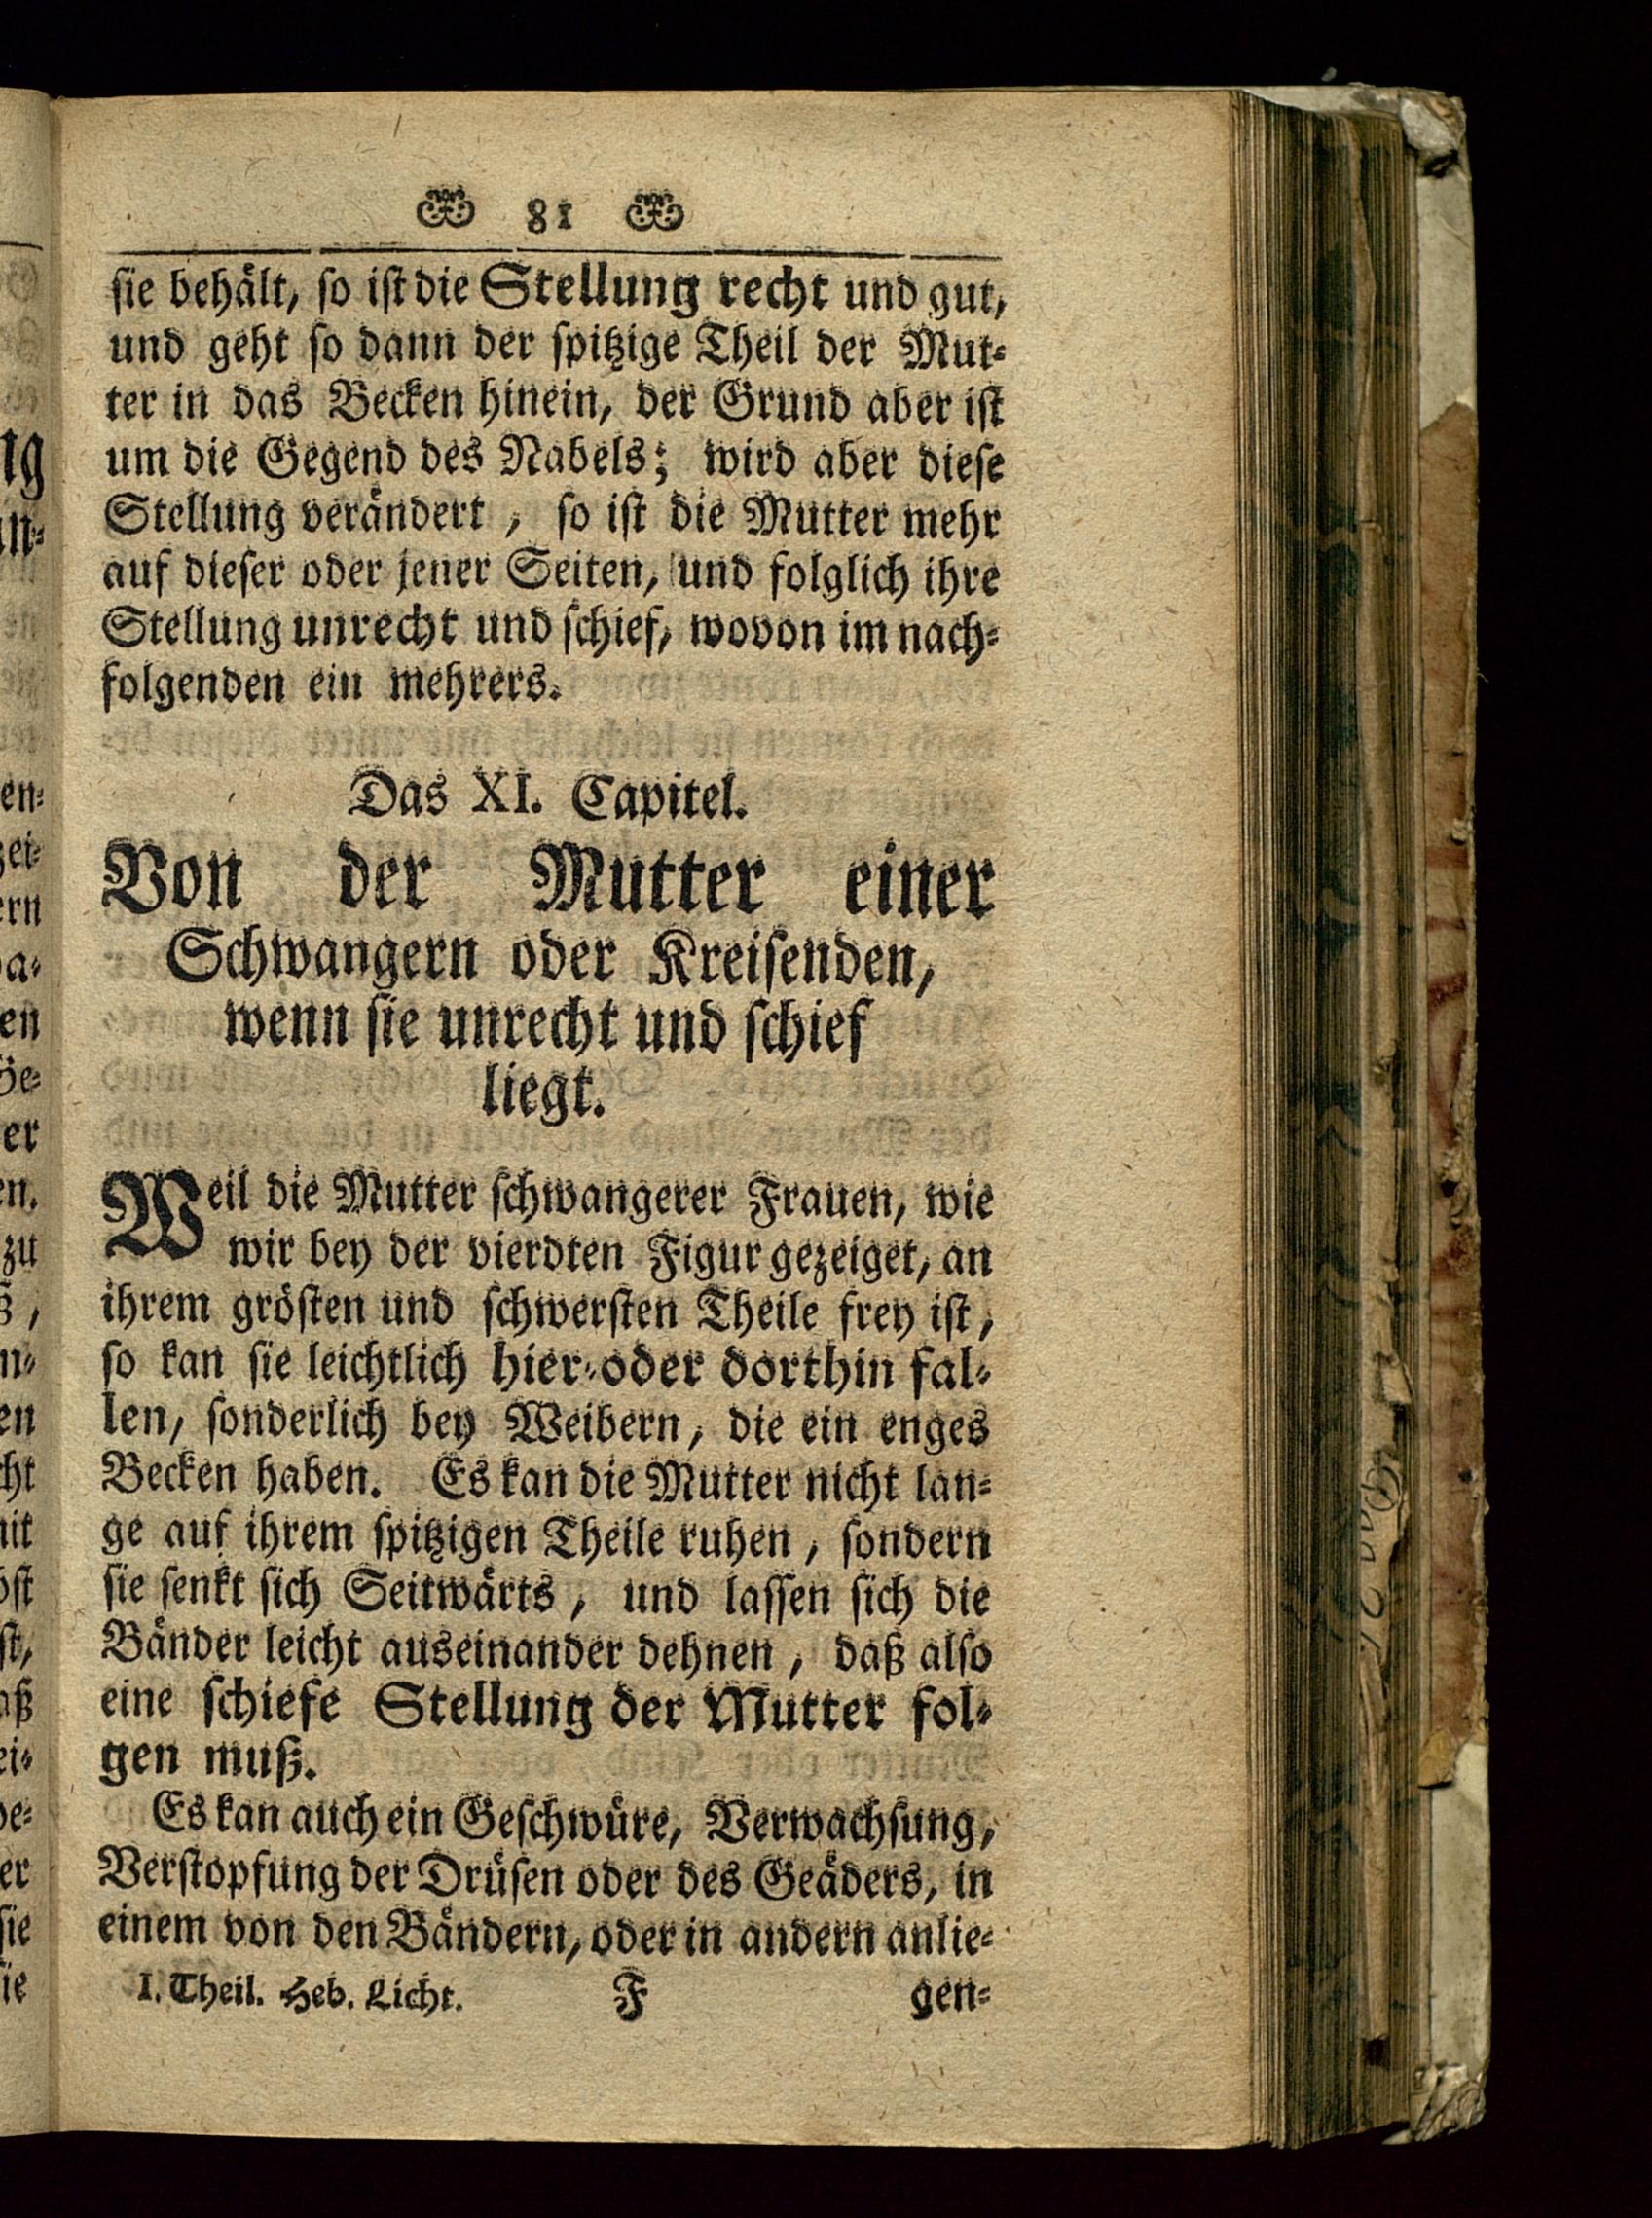 81
sie behält, so ist die Stellung recht und gut,
und geht so dann der spitzige Theil der Mut-
ter in das Becken hinein, der Grund aber ist
um die Gegend des Nabels; wird aber diese
Stellung verändert, so ist die Mutter mehr
auf dieser oder jener Seiten, und folglich ihre
Stellung unrecht und schief, wovon im nach-
folgenden ein mehrers.
Das XI. Capitel.
Von der Mutter einer
Schwangern oder Kreisenden,
wenn sie unrecht und schief
liegt.
Weil die Mutter schwangerer Frauen, wie
wir bey der vierdten Figur gezeiget, an
ihrem grösten und schwersten Theile frey ist,
so kan sie leichtlich hier-oder dorthin fal-
len, sonderlich bey Weibern, die ein enges
Becken haben. Es kan die Mutter nicht lan-
ge auf ihrem spitzigen Theile ruhen, sondern
sie senkt sich Seitwärts, und lassen sich die
Bänder leicht auseinander dehnen, daß also
eine schiefe Stellung der Mutter fol-
gen muß.
Es kan auch ein Geschwüre, Verwachsung,
Verstopfung der Drüsen oder des Geäders, in
einem von den Bändern, oder in andern anlie-
I. Theil. Heb. Licht. F gen-